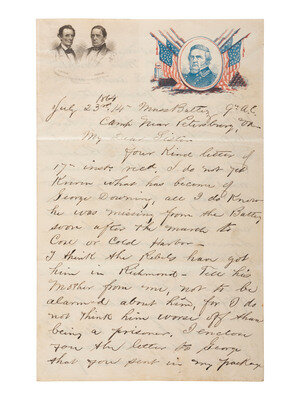 1864
July 23rd 14th Mass Battery 9th A.C.
Camp Near Petersburg, Va
My Dear Sister
Your Kind letter of
17th inst recd, I do not yet
Know what has become of
George Downing, all I do Know
he was missing from the Batty
soon after the march to
Coal or Cold Harbor—
I think the Rebels have got
him in Richmond— Tell his
Mother from me, not to be
alarmed about him, for I do
not think him worse off than
being a prisoner, I enclose
you the letter to George
that you sent in my package